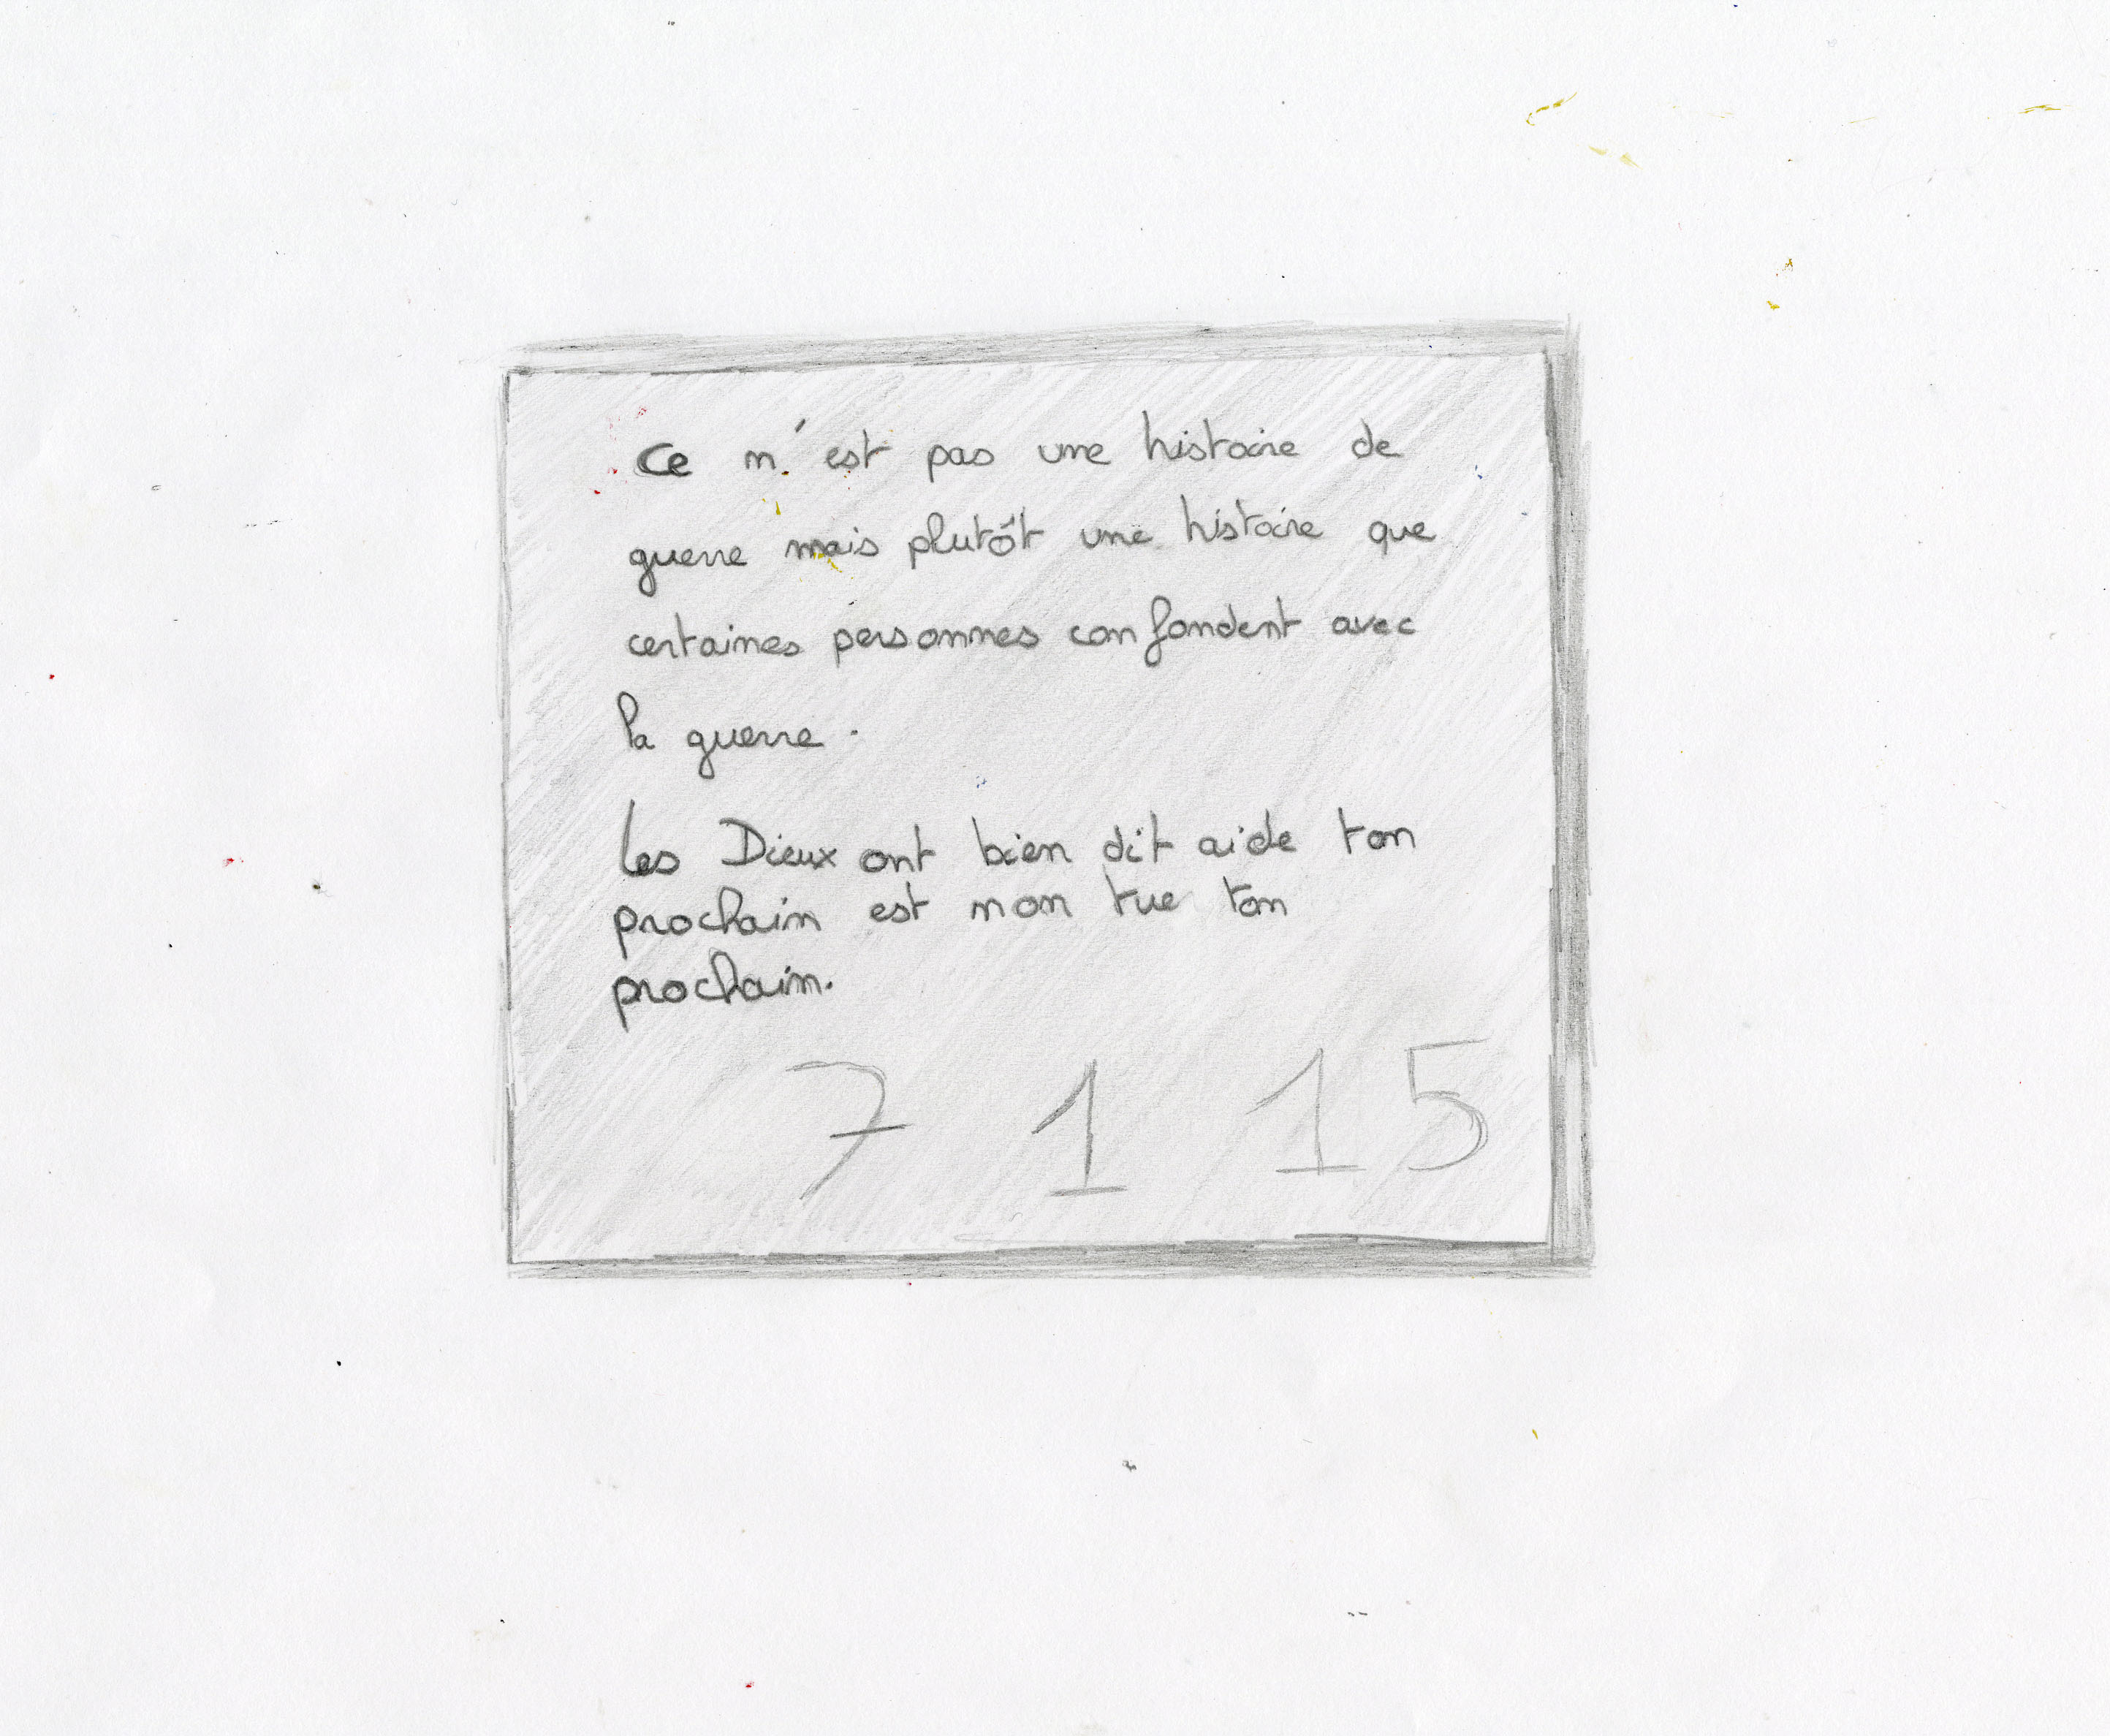 Ce n'est pas une histoire de
guerre mais plutôt une histoire que
certaines personnes confondent avec
la guerre.
Les Dieux ont bien dit aide ton
prochain est non tue ton
prochain.
7 1 15